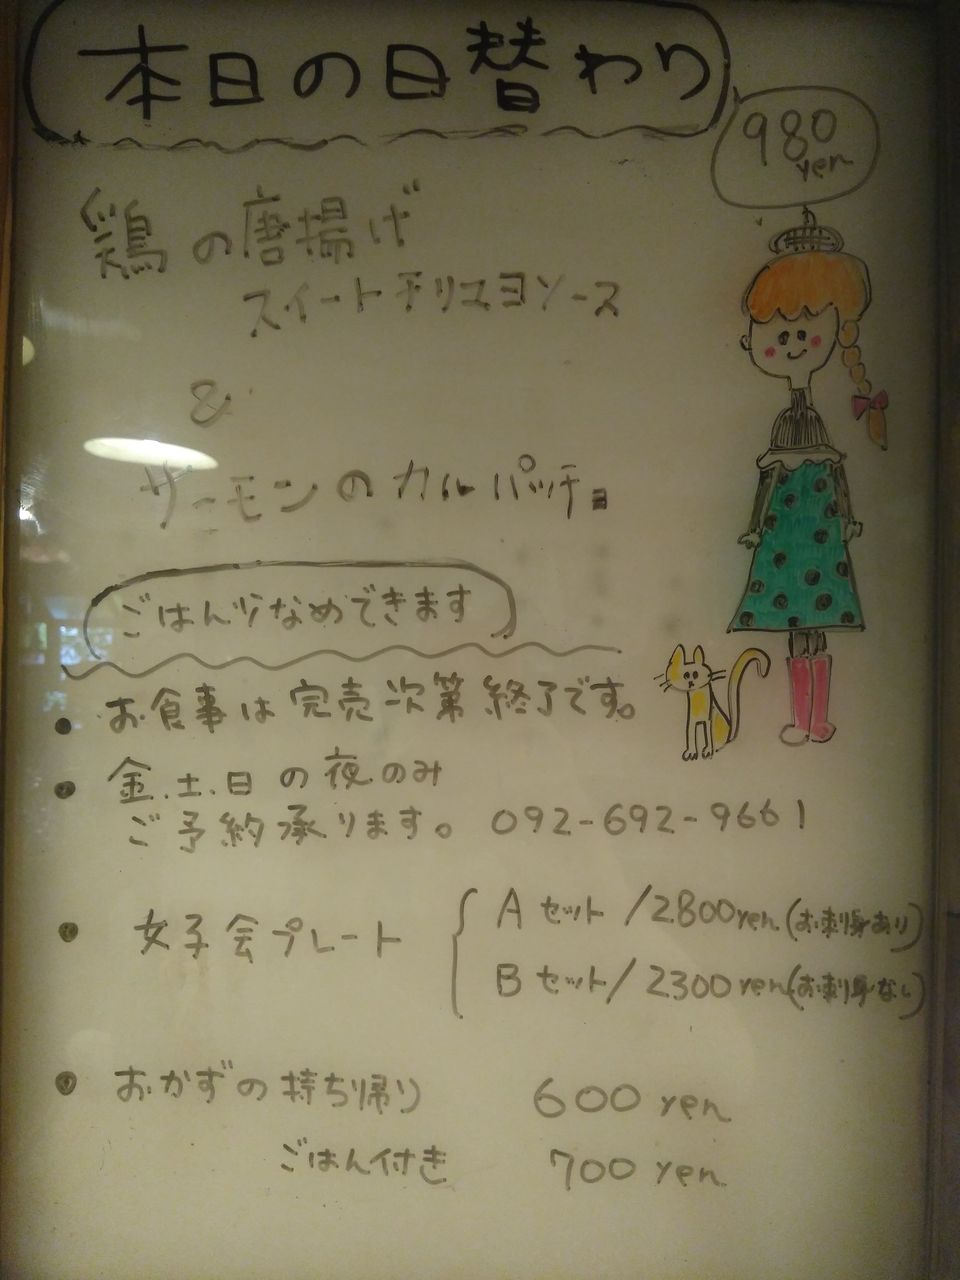 本日の日替わり
980
yen
鶏の唐揚げ
スイートチリマヨソース
&
サーモンのカルパッチョ
ごはん少なめできます
・お食事は完売次第終了です。
・金.土.日の夜のみ
ご予約承ります。 092-692-9661
・女子会プレート
Aセット/2800yen(お刺身あり)
Bセット/2300yen(お刺身なし)
・おかずの持ち帰り 600 yen
ごはん付き 700 yen